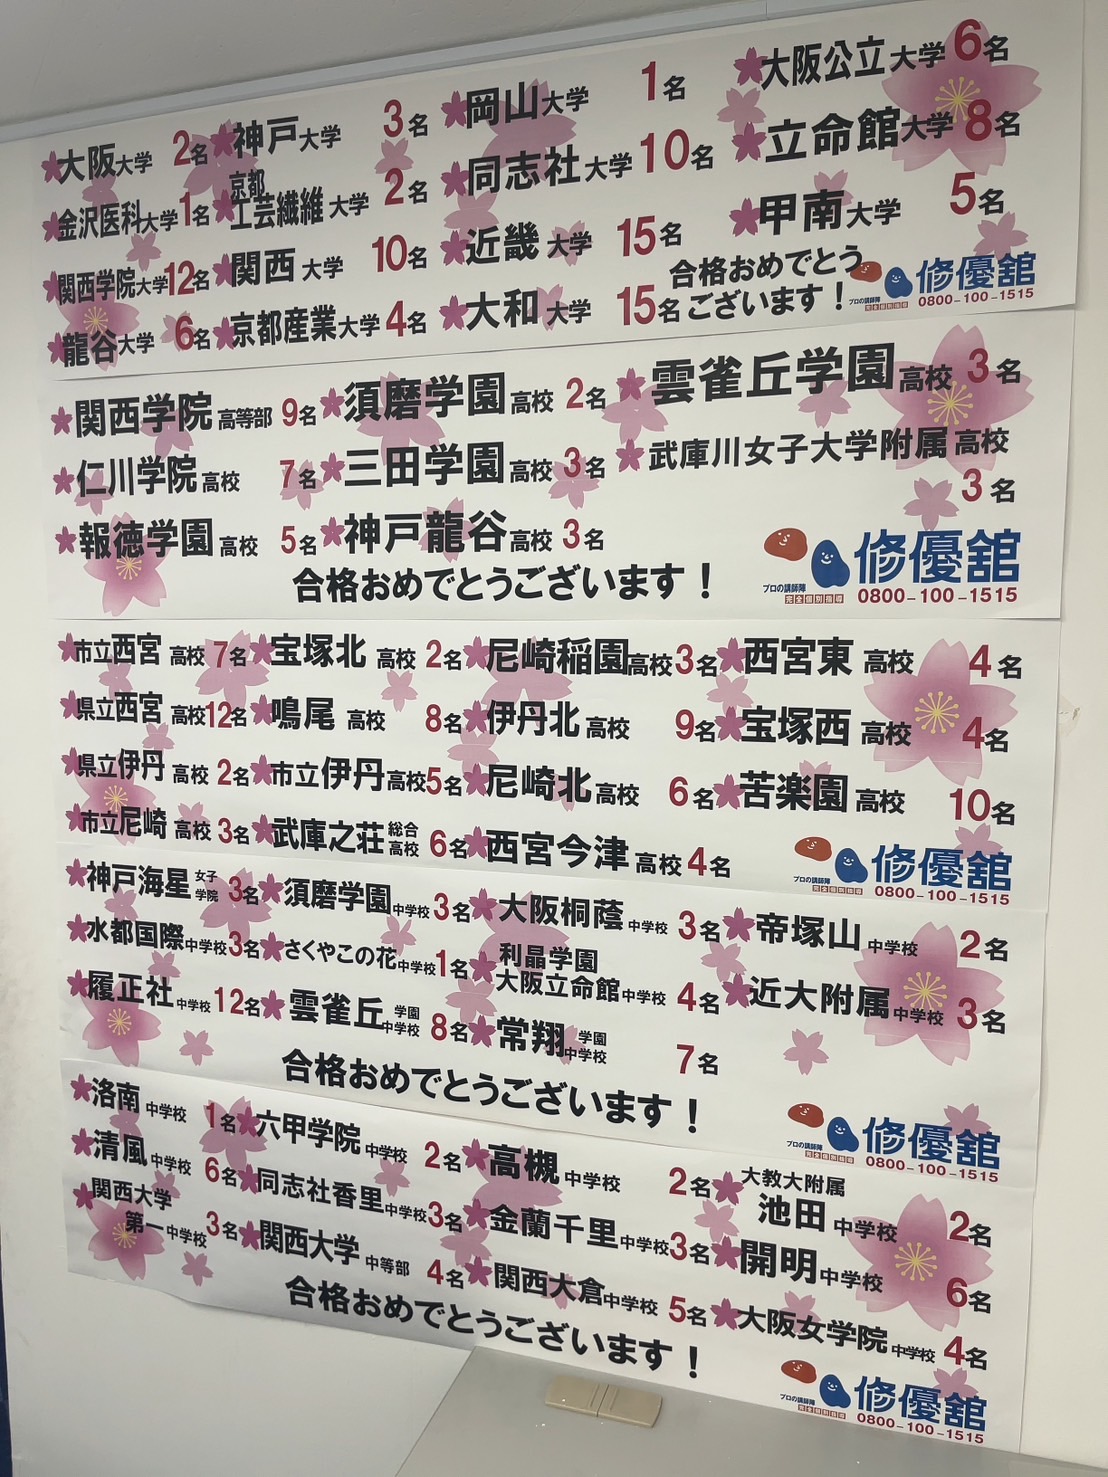 大阪大学 2名 神戸大学 3名 岡山大学 1名 大阪公立大学 6名
金沢医科大学 1名 京都工芸繊維大学 2名 同志社大学 10名 立命館大学 8名
関西学院大学 12名 関西大学 10名 近畿大学 15名 甲南大学 5名
龍谷大学 6名 京都産業大学 4名 大和大学 15名
合格おめでとう
ございます！
プロの講師陣
完全個別指導
修優舘
0800-100-1515
関西学院高等部 9名 須磨学園高校 2名 雲雀丘学園高校 3名
仁川学院高校 7名 三田学園高校 3名 武庫川女子大学附属高校
3名
報徳学園高校 5名 神戸龍谷高校 3名
合格おめでとうございます！
プロの講師陣
完全個別指導
修優舘
0800-100-1515
市立西宮高校 7名 宝塚北高校 2名 尼崎稲園高校 3名 西宮東高校 4名
県立西宮高校 12名 鳴尾高校 8名 伊丹北高校 9名 宝塚西高校 4名
県立伊丹高校 2名 市立伊丹高校 5名 尼崎北高校 6名 苦楽園高校 10名
市立尼崎高校 3名 武庫之荘総合高校 6名 西宮今津高校 4名
プロの講師陣
完全個別指導
修優舘
0800-100-1515
神戸海星女子学院 3名 須磨学園中学校 3名 大阪桐蔭中学校 3名 帝塚山中学校 2名
水都国際中学校 3名 さくやこの花中学校 1名 利晶学園大阪立命館中学校 4名 近大附属中学校 3名
履正社中学校 12名 雲雀丘学園中学校 8名 常翔学園中学校 7名
合格おめでとうございます！
プロの講師陣
完全個別指導
修優舘
0800-100-1515
洛南中学校 1名 六甲学院中学校 2名 高槻中学校 2名 大教大附属池田中学校 2名
清風中学校 6名 同志社香里中学校 3名 金蘭千里中学校 3名 開明中学校 6名
関西大学第一中学校 3名 関西大学中等部 4名 関西大倉中学校 5名 大阪女学院中学校 4名
合格おめでとうございます！
プロの講師陣
完全個別指導
修優舘
0800-100-1515